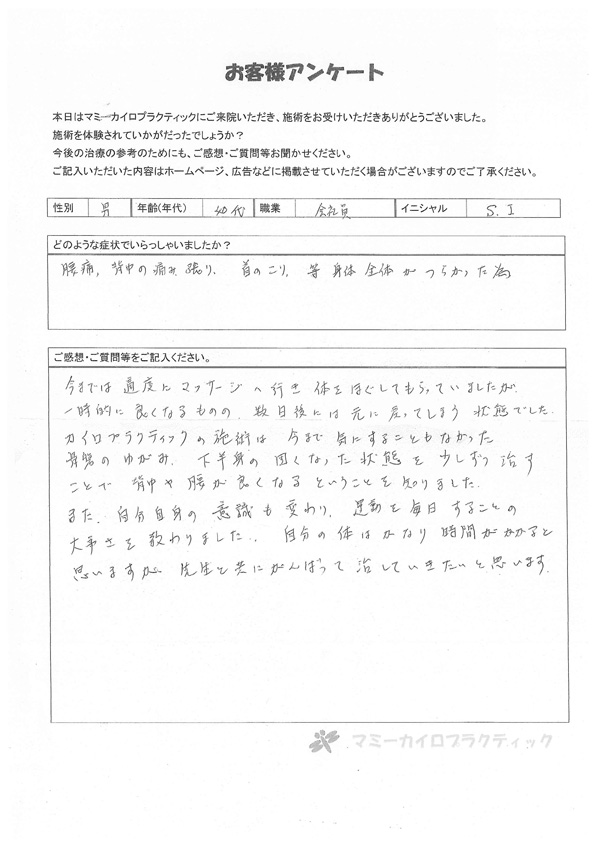 お客様アンケート
本日はマミーカイロプラクティックにご来院いただき、施術をお受けいただきありがとうございました。
施術を体験されていかがだったでしょうか？
今後の治療の参考のためにも、ご感想・ご質問等お聞かせください。
ご記入いただいた内容はホームページ、広告などに掲載させていただく場合がございますのでご了承ください。
性別 男 年齢(年代) 40代 職業 会社員 イニシャル S.I
どのような症状でいらっしゃいましたか？
腰痛, 背中の痛み張り、首のこり, 等身体全体がつらかった為
ご感想・ご質問等をご記入ください。
今までは適度にマッサージへ行き体をほぐしてもらっていましたが、
一時的に良くなるものの、数日後には元に戻ってしまう状態でした.
カイロプラクティックの施術は今まで気にすることもなかった
骨盤のゆがみ、下半身の固くなった状態を少しずつ治す
ことで背中や腰が良くなるということを知りました.
また、自分自身の意識も変わり、運動を毎日することの
大事さを教わりました. 自分の体はかなり時間がかかると
思いますが、先生と共にがんばって治していきたいと思います.
マミーカイロプラクティック